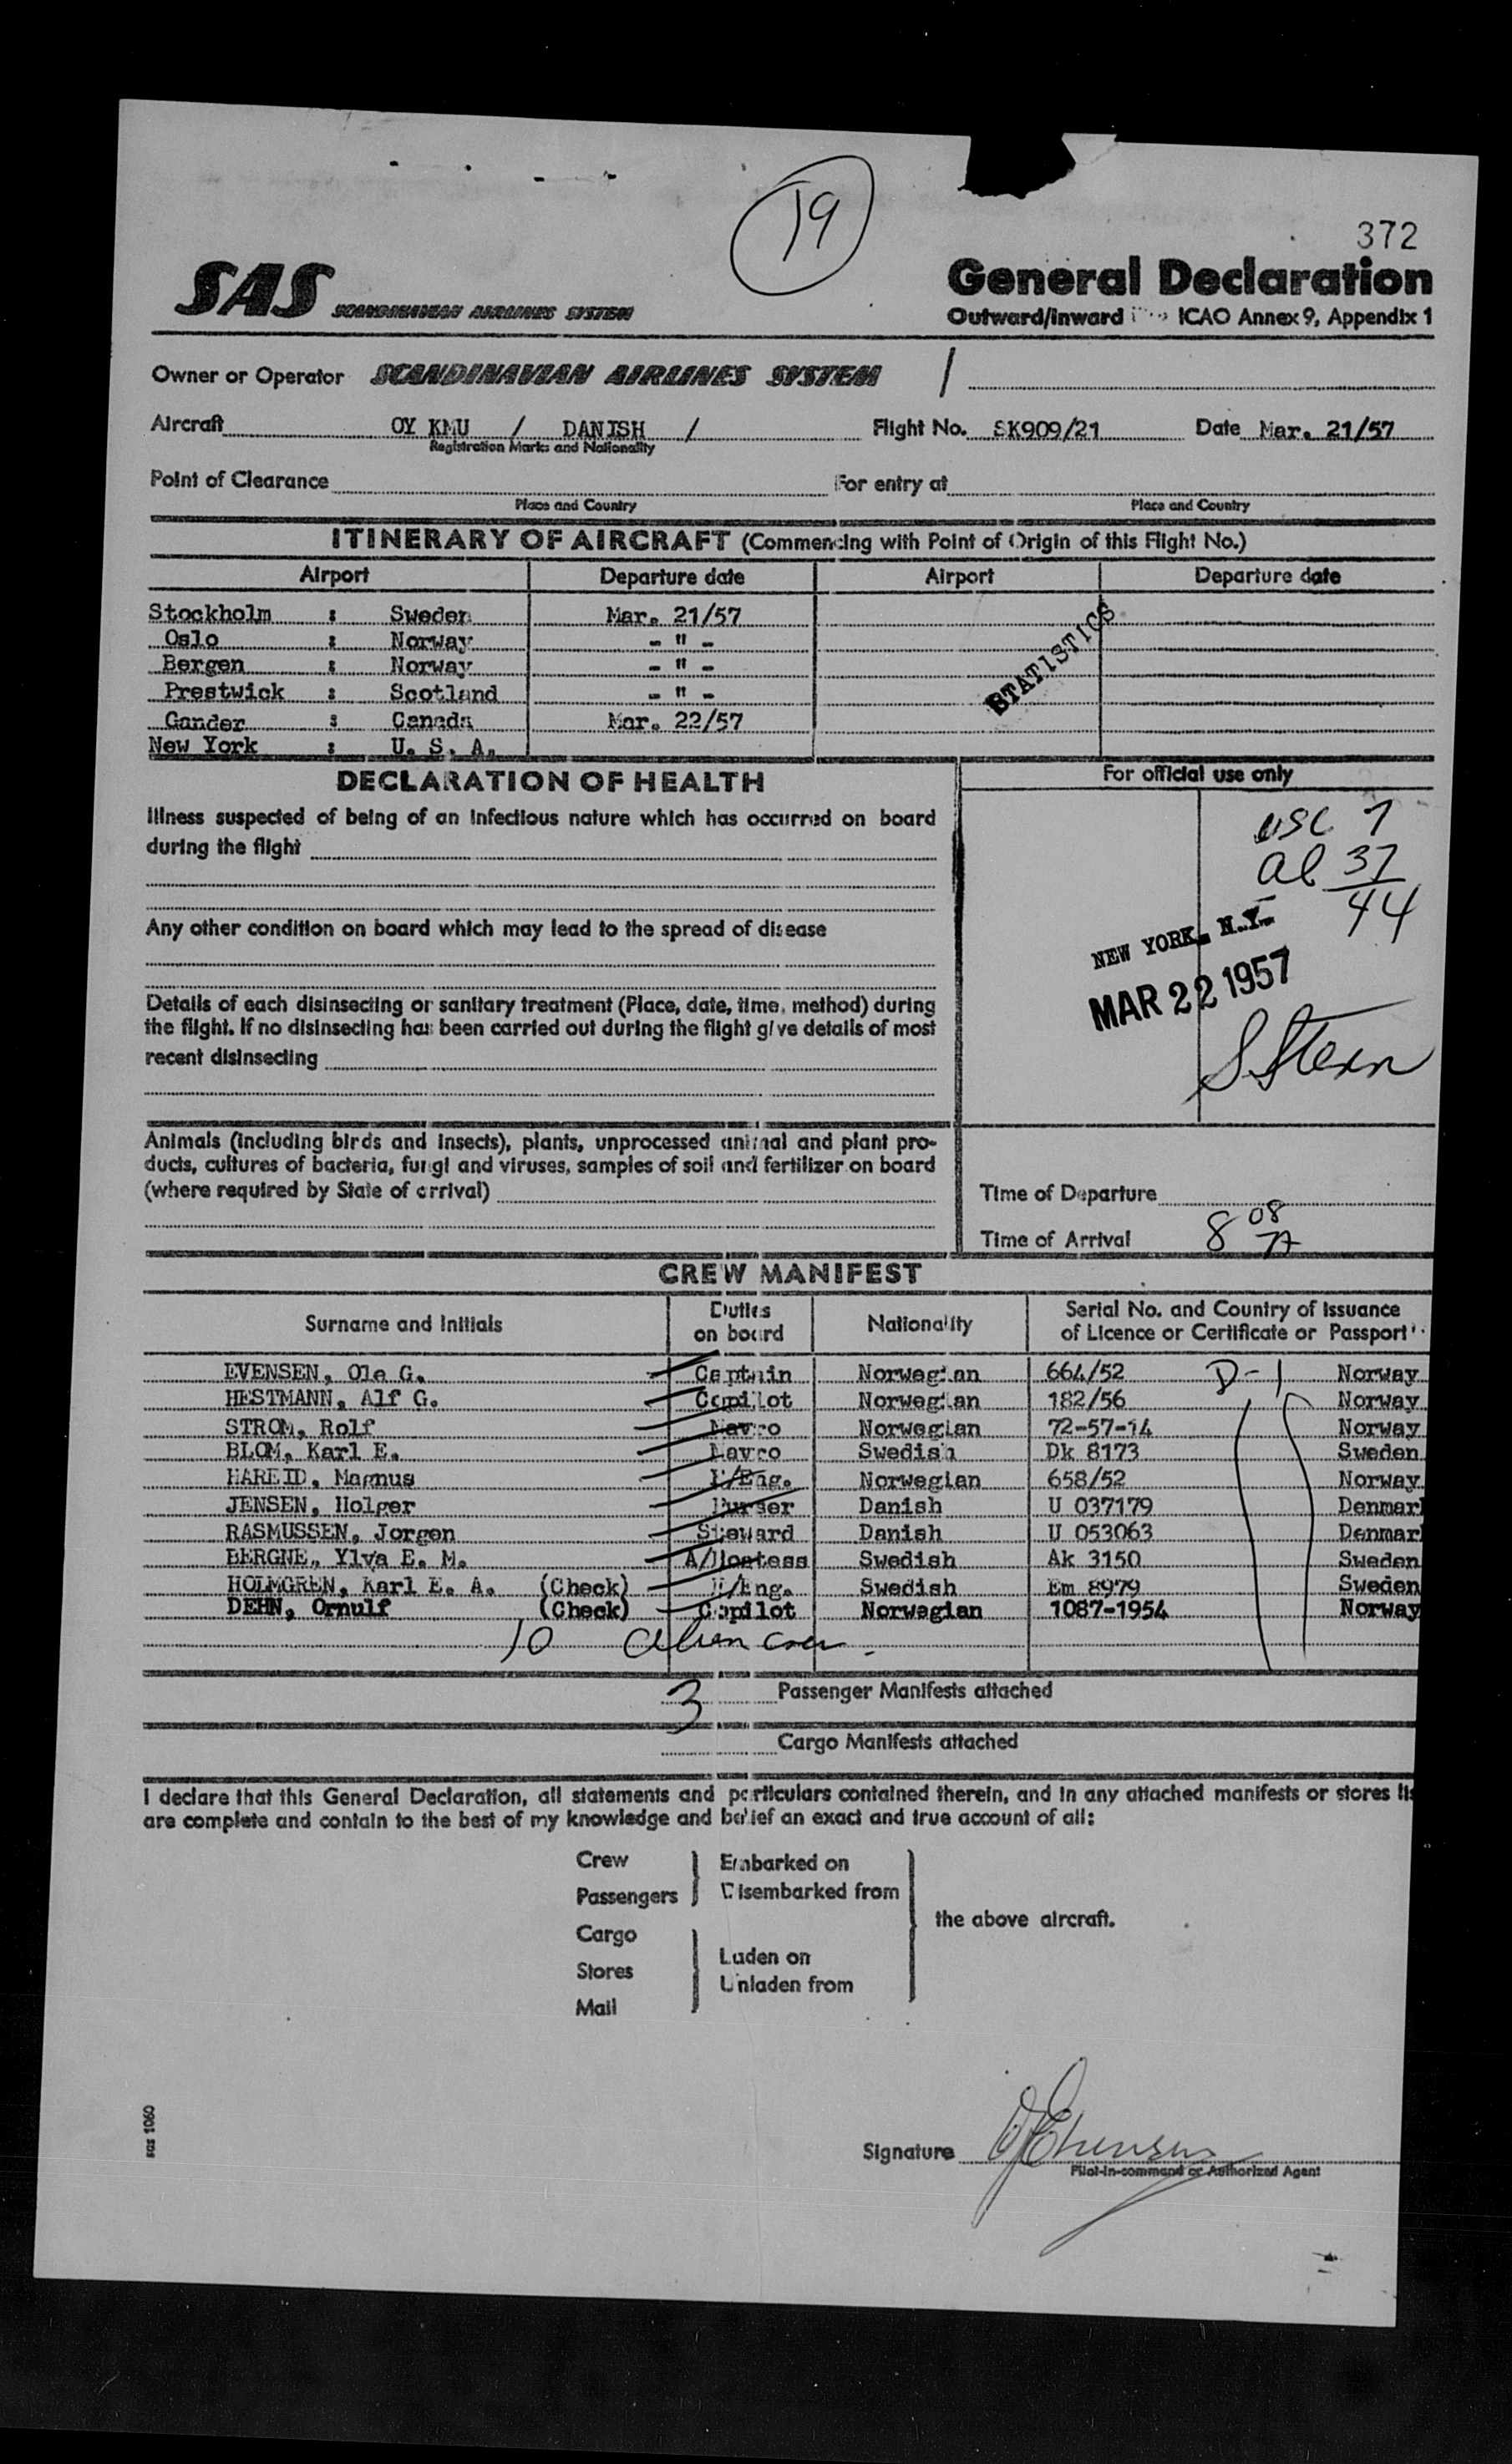 19
372
SAS SCANDINAVIAN AIRLINES SYSTEM
General Declaration
Outward/Inward ICAO Annex 9, Appendix 1
Owner or Operator SCANDINAVIAN AIRLINES SYSTEM /
Aircraft OY KMU / DANISH / Flight No. SK909/21 Date Mar. 21/57
Registration Marks and Nationality
Point of Clearance For entry at
Place and Country Place and Country
ITINERARY OF AIRCRAFT (Commencing with Point of Origin of this Flight No.)
Airport Departure date Airport Departure date
Stockholm : Sweden Mar. 21/57
Oslo : Norway - " -
Bergen : Norway - " -
Prestwick : Scotland - " -
Gander : Canada Mar. 22/57
New York : U. S. A.
STATISTICS
DECLARATION OF HEALTH
Illness suspected of being of an infectious nature which has occurred on board
during the flight
Any other condition on board which may lead to the spread of disease
Details of each disinsecting or sanitary treatment (Place, date, time, method) during
the flight. If no disinsecting has been carried out during the flight give details of most
recent disinsecting
Animals (including birds and insects), plants, unprocessed animal and plant pro-
ducts, cultures of bacteria, fungi and viruses, samples of soil and fertilizer on board
(where required by State of arrival)
For official use only
USC 7
al 37
44
NEW YORK, N.Y.
MAR 22 1957
S Stern
Time of Departure
Time of Arrival 8 08 A
CREW MANIFEST
Surname and Initials Duties on board Nationality Serial No. and Country of Issuance of Licence or Certificate or Passport
EVENSEN, Ole G. Captain Norwegian 664/52 D-1 Norway
HESTMANN, Alf G. Copilot Norwegian 182/56 Norway
STROM, Rolf Navro Norwegian 72-57-14 Norway
BLOM, Karl E. Navro Swedish Dk 8173 Sweden
HAREID, Magnus F/Eng. Norwegian 658/52 Norway
JENSEN, Holger Purser Danish U 037179 Denmar
RASMUSSEN, Jorgen Steward Danish U 053063 Denmar
BERGNE, Ylva E. M. A/Hostess Swedish Ak 3150 Sweden
HOLMGREN, Karl E. A. (Check) F/Eng. Swedish Em 8979 Sweden
DEHN, Ornulf (Check) Copilot Norwegian 1087-1954 Norway
10 alien crew
3 Passenger Manifests attached
Cargo Manifests attached
I declare that this General Declaration, all statements and particulars contained therein, and in any attached manifests or stores lis
are complete and contain to the best of my knowledge and belief an exact and true account of all:
Crew
Passengers
Embarked on
Disembarked from
Cargo
Stores
Mail
Laden on
Unladen from
the above aircraft.
Signature
Pilot-in-command or Authorized Agent
sas 1060